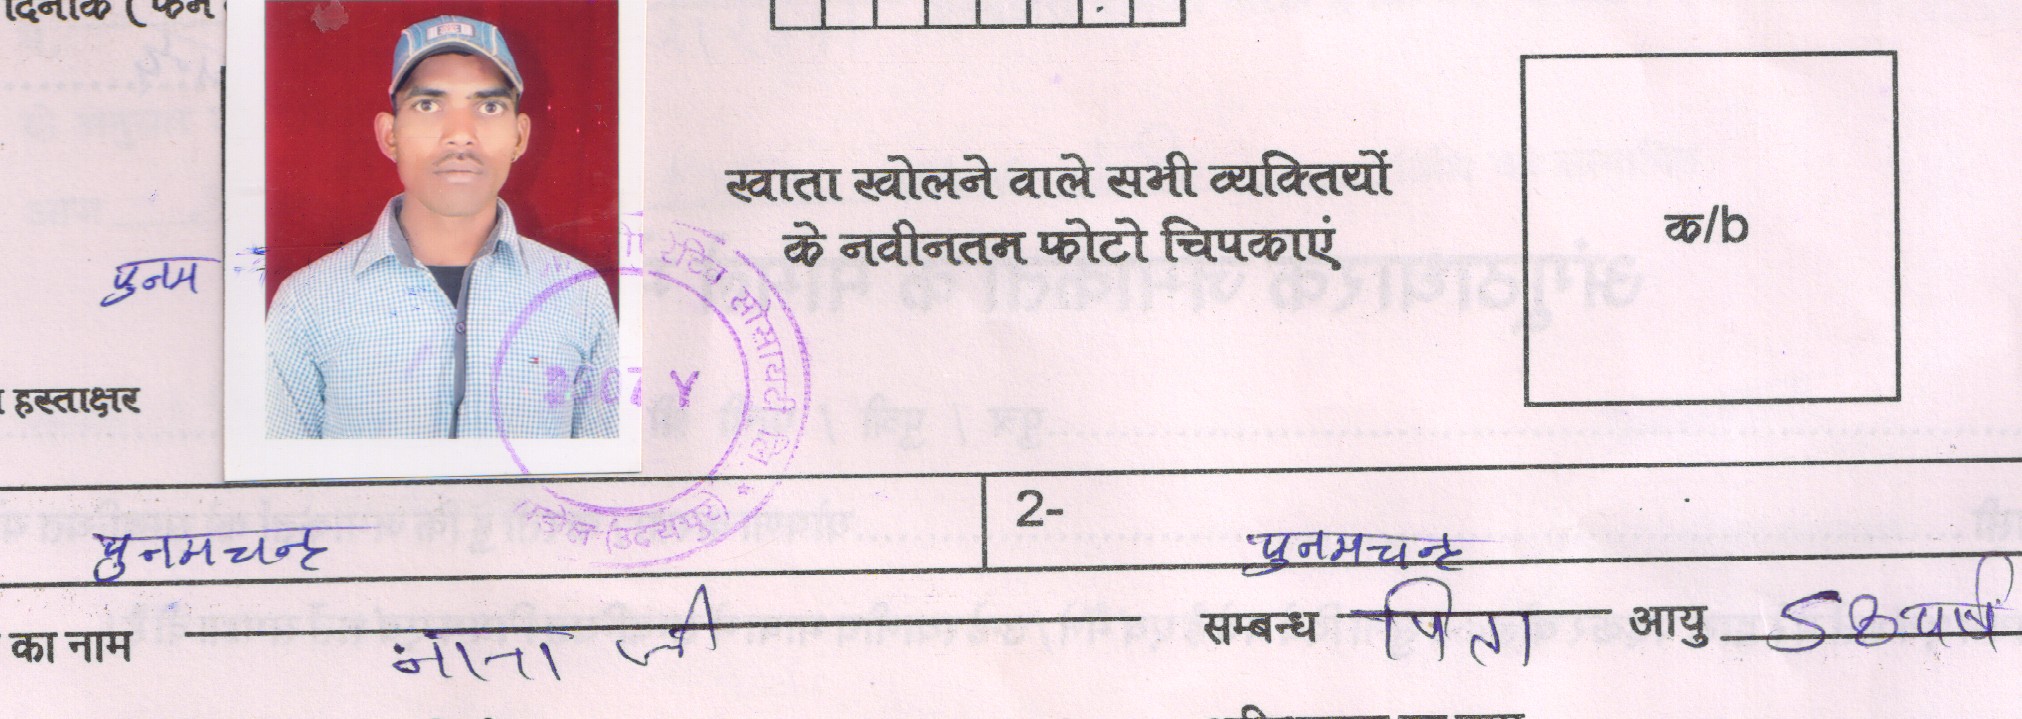 दिनांक (
खाता खोलने वाले सभी व्यक्तियों
के नवीनतम फोटो चिपकाएं
क/b
पुनम
हस्ताक्षर
रेटिव सोसायटी लि. * (उदयपुर)
2-
पुनमचन्द पुनमचन्द
का नाम नाना जी सम्बन्ध पिता आयु 58 वर्ष